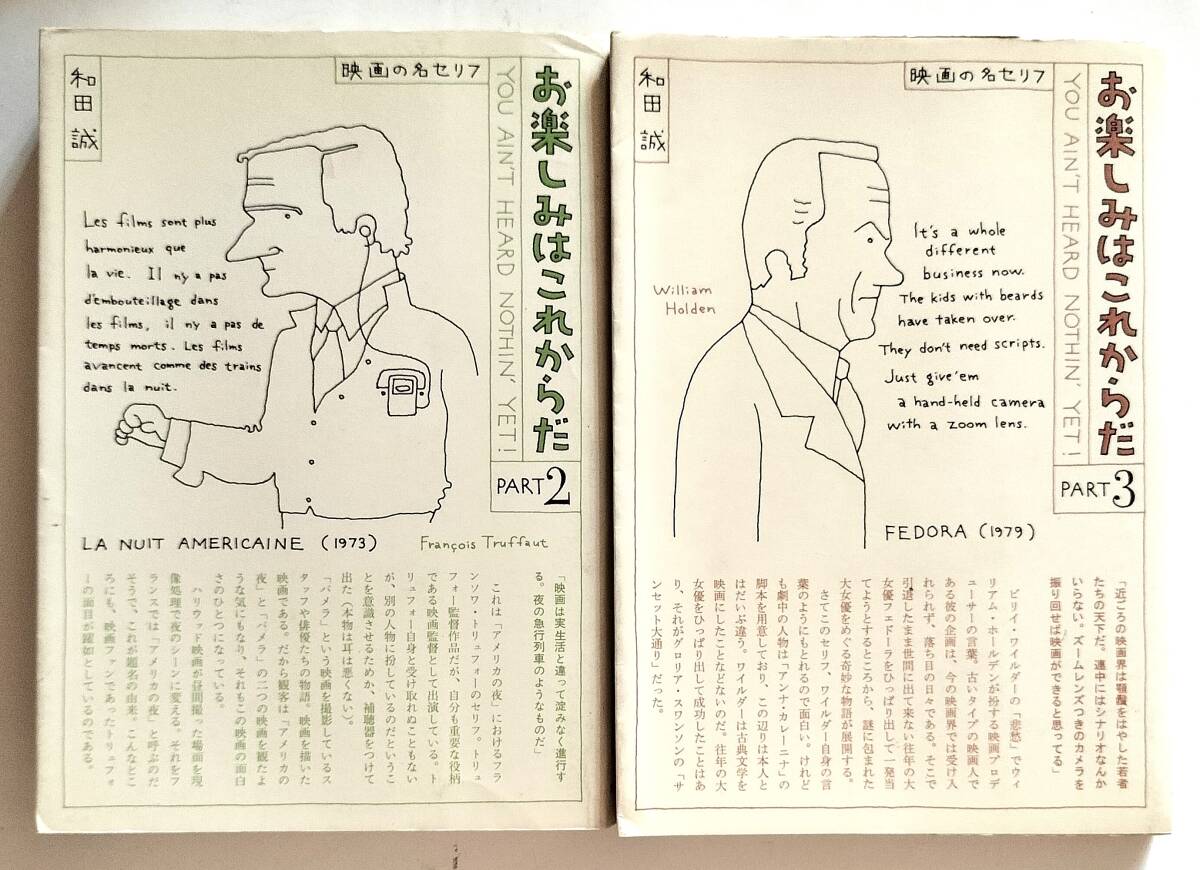 和田 誠
映画の名セリフ
お楽しみはこれからだ
YOU AIN'T HEARD NOTHIN', YET!
PART2
Les films sont plus
harmonieux que
la vie. Il n'y a pas
d'embouteillage dans
les films, il n'y a pas de
temps morts. Les films
avancent comme des trains
dans la nuit.
LA NUIT AMERICAINE (1973)
François Truffaut
「映画は実生活と違って淀みなく進行す
る。夜の急行列車のようなものだ」
これは「アメリカの夜」におけるフラ
ンソワ・トリュフォーのセリフ。トリュ
フォー監督作品だが、自分も重要な役柄
である映画監督として出演している。ト
リュフォー自身と受け取れぬこともない
が、別の人物に扮しているのだというこ
とを意識させるためか、補聴器をつけて
出た（本物は耳は悪くない）。
「パメラ」という映画を撮影しているス
タッフや俳優たちの物語。映画を描いた
映画である。だから観客は「アメリカの
夜」と「パメラ」の二つの映画を観たよ
うな気にもなり、それもこの映画の面白
さのひとつになっている。
ハリウッド映画が昼間撮った場面を現
像処理で夜のシーンに変える。それをフ
ランスでは「アメリカの夜」と呼ぶのだ
そうで、これが題名の由来。こんなとこ
ろにも、映画ファンであったトリュフォ
ーの面目が躍如としているのである。
和田 誠
映画の名セリフ
お楽しみはこれからだ
YOU AIN'T HEARD NOTHIN', YET!
PART3
William
Holden
It's a whole
different
business now.
The kids with beards
have taken over.
They don't need scripts.
Just give'em
a hand-held camera
with a zoom lens.
FEDORA (1979)
「近ごろの映画界は顎鬚をはやした若者
たちの天下だ。連中にはシナリオなんか
いらない。ズームレンズつきのカメラを
振り回せば映画ができると思ってる」
ビリイ・ワイルダーの「悲愁」でウィ
リアム・ホールデンが扮する映画プロデ
ューサーの言葉。古いタイプの映画人で
ある彼の企画は、今の映画界では受け入
れられず、落ち目の日々である。そこで
引退したまま世間に出て来ない往年の大
女優フェドーラをひっぱり出して一発当
てようとするところから、謎に包まれた
大女優をめぐる奇妙な物語が展開する。
さてこのセリフ、ワイルダー自身の言
葉のようにもとれるので面白い。けれど
も劇中の人物は「アンナ・カレーニナ」の
脚本を用意しており、この辺りは本人と
はだいぶ違う。ワイルダーは古典文学を
映画にしたことなどないのだ。往年の大
女優をひっぱり出して成功したことはあ
り、それがグロリア・スワンソンの「サ
ンセット大通り」だった。